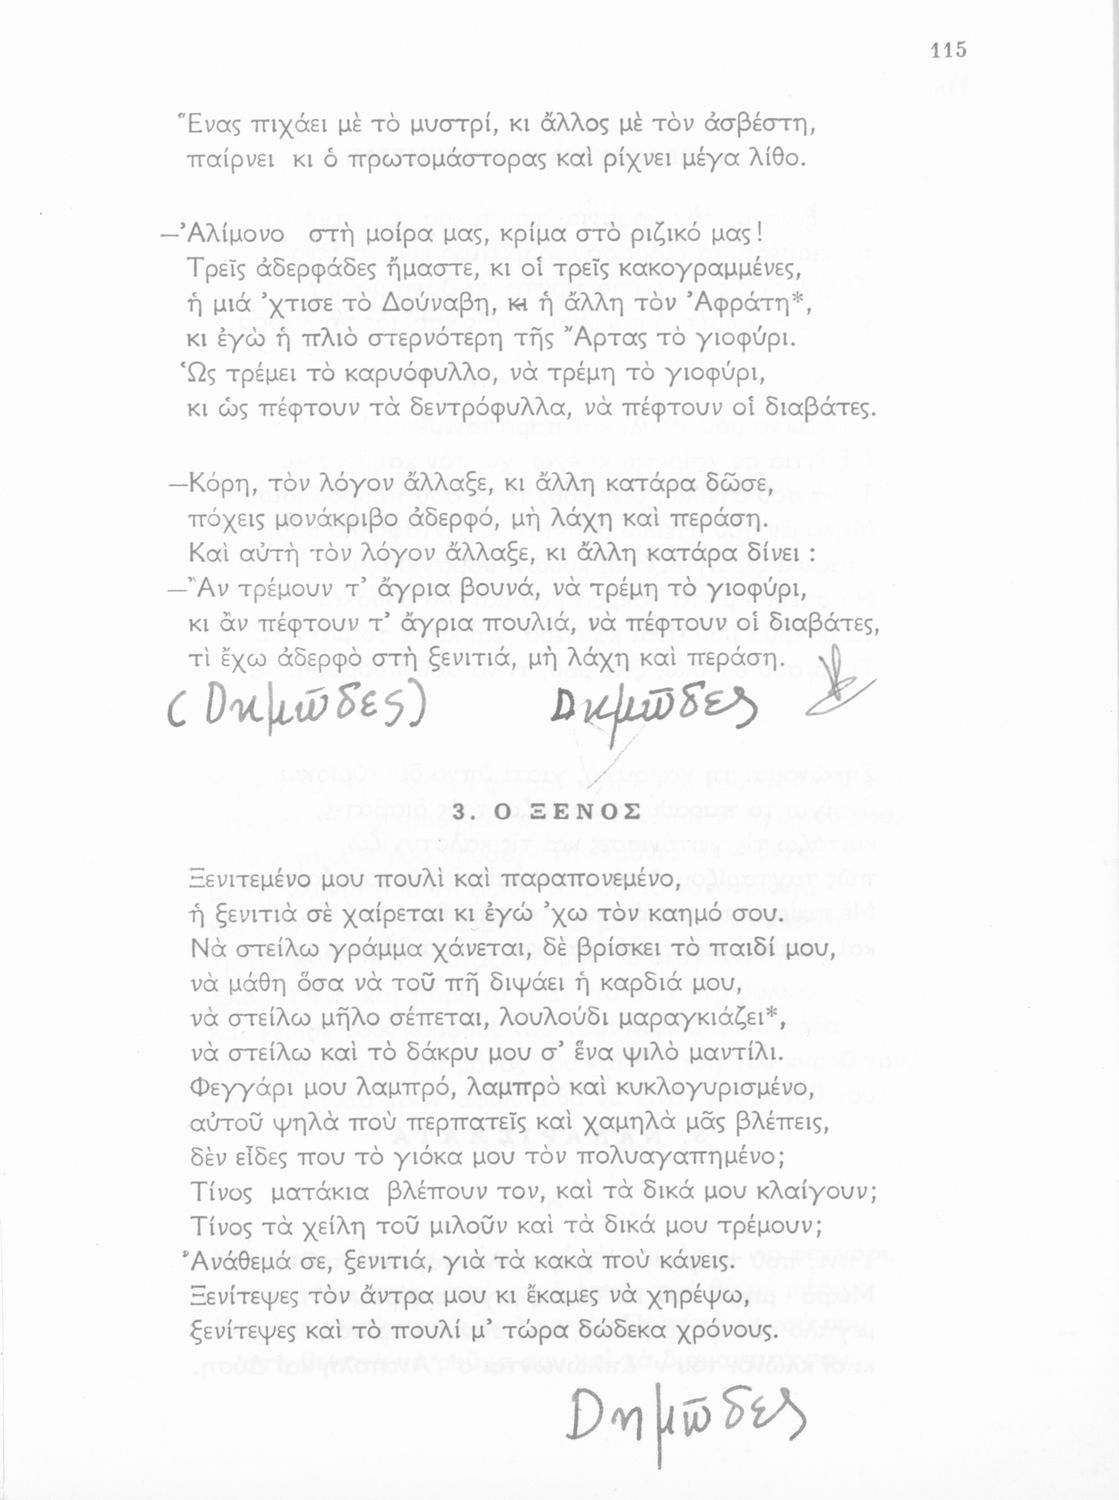 115
Ἕνας πιχάει μὲ τὸ μυστρί, κι ἄλλος μὲ τὸν ἀσβέστη,
παίρνει κι ὁ πρωτομάστορας καὶ ρίχνει μέγα λίθο.
—Ἀλίμονο στὴ μοίρα μας, κρίμα στὸ ριζικό μας!
Τρεῖς ἀδερφάδες ἤμαστε, κι οἱ τρεῖς κακογραμμένες,
ἡ μιά ᾽χτισε τὸ Δούναβη, κι ἡ ἄλλη τὸν Ἀφράτη*,
κι ἐγὼ ἡ πλιὸ στερνότερη τῆς Ἄρτας τὸ γιοφύρι.
Ὡς τρέμει τὸ καρυόφυλλο, νὰ τρέμη τὸ γιοφύρι,
κι ὡς πέφτουν τὰ δεντρόφυλλα, νὰ πέφτουν οἱ διαβάτες.
—Κόρη, τὸν λόγον ἄλλαξε, κι ἄλλη κατάρα δῶσε,
πόχεις μονάκριβο ἀδερφό, μὴ λάχη καὶ περάση.
Καὶ αὐτὴ τὸν λόγον ἄλλαξε, κι ἄλλη κατάρα δίνει :
—Ἂν τρέμουν τ᾽ ἄγρια βουνά, νὰ τρέμη τὸ γιοφύρι,
κι ἂν πέφτουν τ᾽ ἄγρια πουλιά, νὰ πέφτουν οἱ διαβάτες,
τὶ ἔχω ἀδερφὸ στὴ ξενιτιά, μὴ λάχη καὶ περάση.
(Δημῶδες) Δημῶδες
3. Ο ΞΕΝΟΣ
Ξενιτεμένο μου πουλὶ καὶ παραπονεμένο,
ἡ ξενιτιὰ σὲ χαίρεται κι ἐγώ ᾽χω τὸν καημό σου.
Νὰ στείλω γράμμα χάνεται, δὲ βρίσκει τὸ παιδί μου,
νὰ μάθη ὅσα νὰ τοῦ πῆ διψάει ἡ καρδιά μου,
νὰ στείλω μῆλο σέπεται, λουλούδι μαραγκιάζει*,
νὰ στείλω καὶ τὸ δάκρυ μου σ᾽ ἕνα ψιλὸ μαντίλι.
Φεγγάρι μου λαμπρό, λαμπρὸ καὶ κυκλογυρισμένο,
αὐτοῦ ψηλὰ ποὺ περπατεῖς καὶ χαμηλὰ μᾶς βλέπεις,
δὲν εἶδες που τὸ γιόκα μου τὸν πολυαγαπημένο;
Τίνος ματάκια βλέπουν τον, καὶ τὰ δικά μου κλαίγουν;
Τίνος τὰ χείλη τοῦ μιλοῦν καὶ τὰ δικά μου τρέμουν;
Ἀνάθεμά σε, ξενιτιά, γιὰ τὰ κακὰ ποὺ κάνεις.
Ξενίτεψες τὸν ἄντρα μου κι ἔκαμες νὰ χηρέψω,
ξενίτεψες καὶ τὸ πουλί μ᾽ τώρα δώδεκα χρόνους.
Δημῶδες